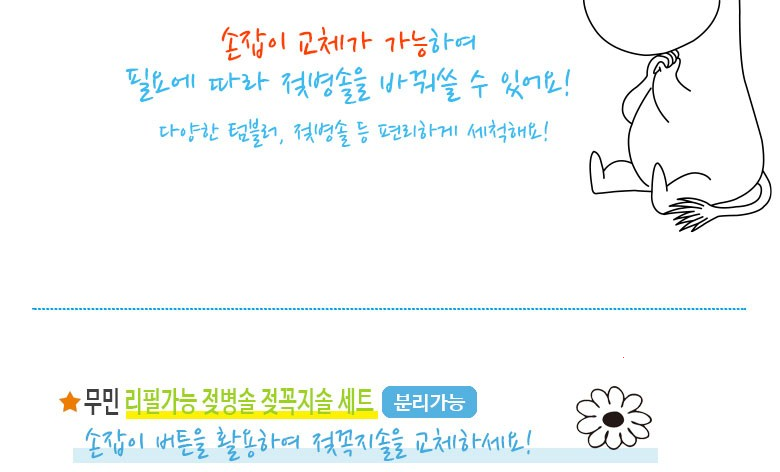 손잡이 교체가 가능하여
필요에 따라 젖병솔을 바꿔쓸 수 있어요!
다양한 텀블러, 젖병솔 등 편리하게 세척해요!
무민 리필가능 젖병솔 젖꼭지솔 세트 분리가능
손잡이 버튼을 활용하여 젖꼭지솔을 교체하세요!